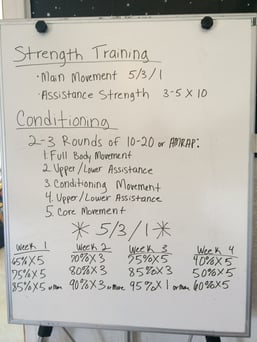 Strength Training
· Main Movement 5/3/1
· Assistance Strength 3-5 x 10
Conditioning
2-3 Rounds of 10-20 or AMRAP:
1. Full Body Movement
2. Upper/Lower Assistance
3. Conditioning Movement
4. Upper/Lower Assistance
5. Core Movement
* 5/3/1 *
Week 1 Week 2 Week 3 Week 4
65% x 5 70% x 3 75% x 5 40% x 5
75% x 5 80% x 3 85% x 3 50% x 5
85% x 5 or more 90% x 3 or more 95% x 1 or more 60% x 5